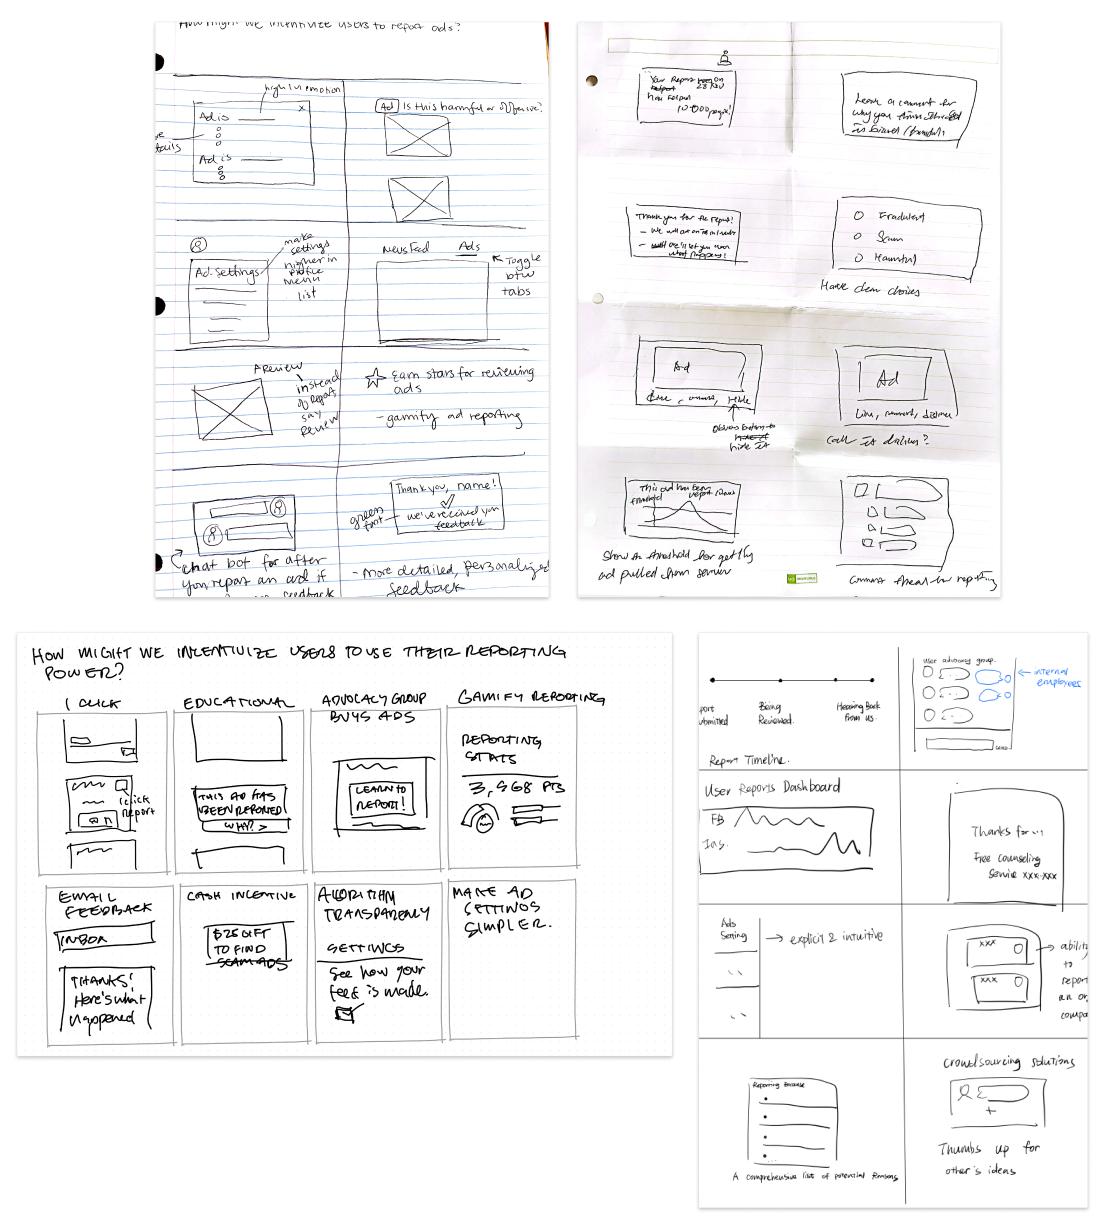 How might we incentivize users to report ads?
high lvl emotion
x
Ad is
tails
Ad is
Ad Is this harmful or offensive?
Ad Settings
make
settings
higher in
profile
menu
list
Newsfeed Ads
Toggle
btw
tabs
A Review
instead
of report
say
Review
Earn stars for reviewing
ads
- gamify ad reporting
chat bot for after
you report an ad if
feedback
Thank you, name!
we've received you
feedback
green
font
- More detailed, personalized
feedback
Your Report on
28 Nov
has helped
10,000 people!
Leave a comment for
why you think
is biased / harmful
Thank you for the report!
- We will
- we'll let you know
what happens!
Fradulent
Scam
Harmful
Have clear choices
Ad
comment, Hide
Obvious button to
hide it
Ad
Like, comment, dislike
Call it dislike?
This ad has been
reported
Show a threshold for getting
ad pulled from server
Comment thread for reporting
HOW MIGHT WE INCENTIVIZE USERS TO USE THEIR REPORTING
POWER?
1 CLICK
click
report
EDUCATIONAL
THIS AD HAS
BEEN REPORTED
WHY? >
ADVOCACY GROUP
BUYS ADS
LEARN TO
REPORT!
GAMIFY REPORTING
REPORTING
STATS
3,568 PTS
EMAIL
FEEDBACK
INBOX
THANKS!
Here's what
happened
CASH INCENTIVE
$25 GIFT
TO FIND
SCAM ADS
ALGORITHM
TRANSPARENCY
SETTINGS
See how your
feed is made.
MAKE AD
SETTINGS
SIMPLER.
port
ubmitted
Being
Reviewed.
Hearing Back
From us.
Report Timeline.
user advisory group.
internal
employees
send
User Reports Dashboard
FB
Ins.
Thanks for ...
Free counseling
Service xxx-xxx
Ads
Setting
explicit & intuitive
xxx
xxx
ability
to
report
an or
compa
Reporting Because
A comprehensive list of potential reasons
crowdsourcing solutions
+
Thumbs up for
other's ideas